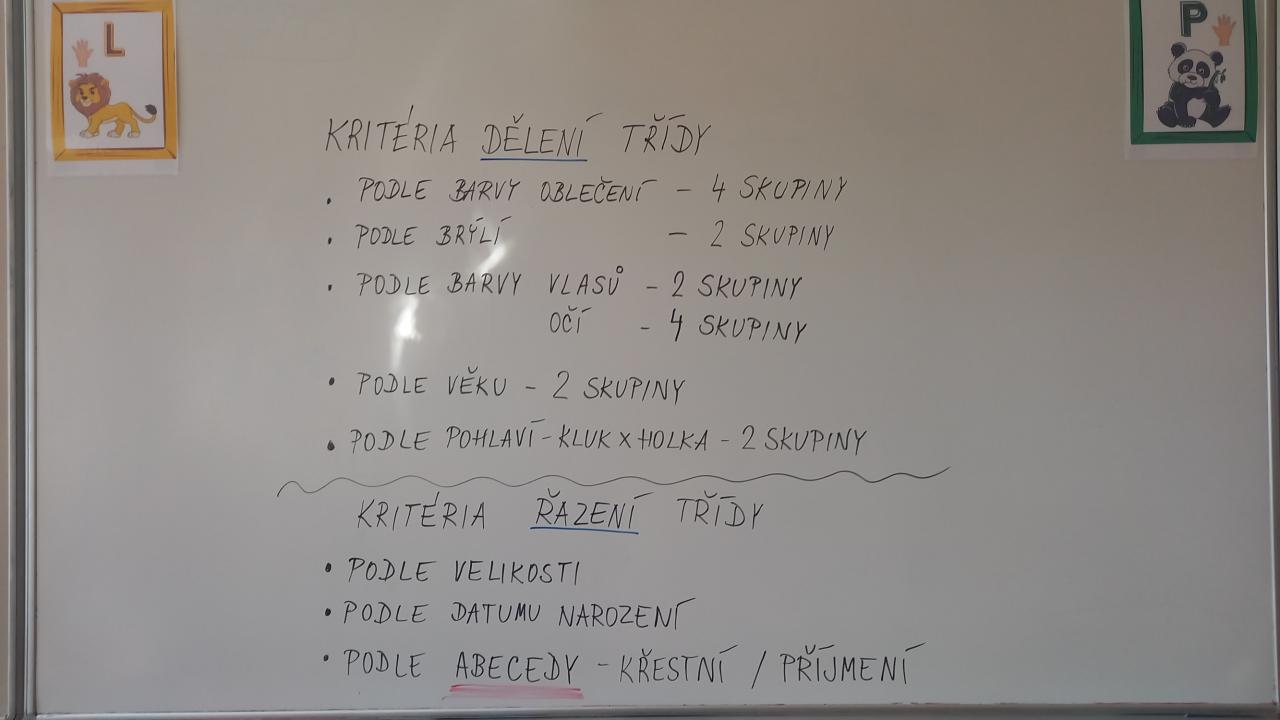 L
P
KRITÉRIA DĚLENÍ TŘÍDY
. PODLE BARVY OBLEČENÍ – 4 SKUPINY
. PODLE BRÝLÍ – 2 SKUPINY
. PODLE BARVY VLASŮ – 2 SKUPINY
OČÍ - 4 SKUPINY
• PODLE VĚKU – 2 SKUPINY
• PODLE POHLAVÍ – KLUK x HOLKA – 2 SKUPINY
KRITÉRIA ŘAZENÍ TŘÍDY
• PODLE VELIKOSTI
• PODLE DATUMU NAROZENÍ
• PODLE ABECEDY – KŘESTNÍ / PŘÍJMENÍ